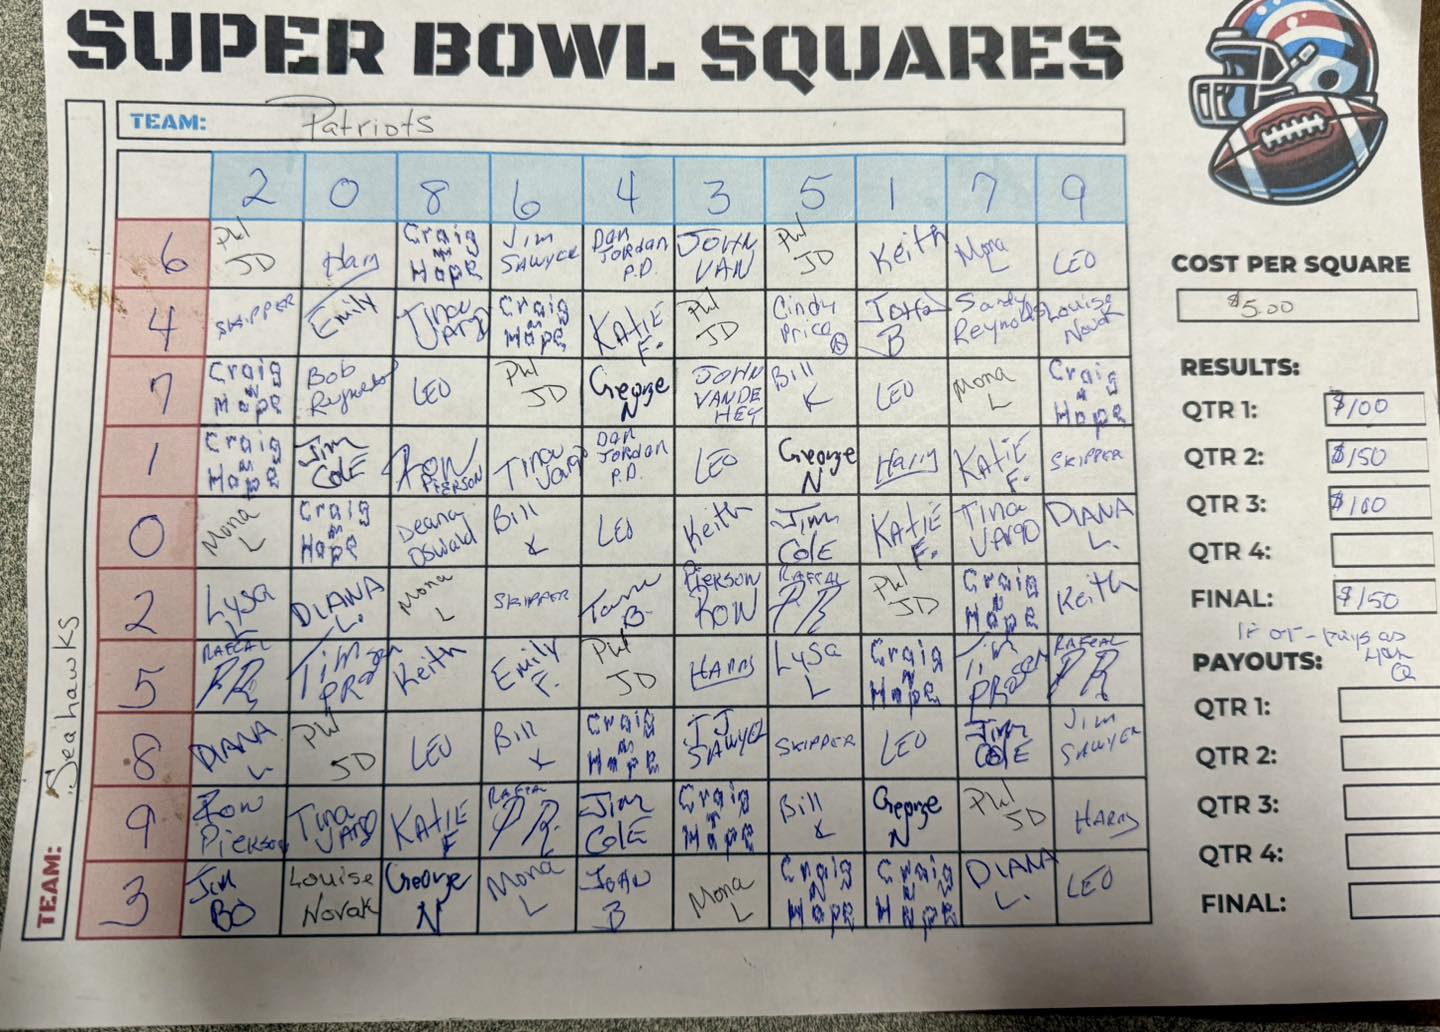 SUPER BOWL SQUARES
TEAM: Patriots
2 0 8 6 4 3 5 1 7 9
6 JD Harry Craig n Hope Jim SAWYER DAN JORDAN P.D. JOHN VAN JD Keith Mona L LEO
4 SKIPPER Emily Tina VARGO Craig n Hope KATIE F. JD Cindy Price John B Sandy Reynolds Louise Novak
7 Craig n Hope Bob Reynolds LEO JD George N JOHN VANDE HEY Bill K LEO Mona L Craig n Hope
1 Craig n Hope Jim COLE RON PIERSON Tina Vargo DAN JORDAN P.D. LEO George N Harry KATIE F. SKIPPER
0 Mona L Craig n Hope Deana Oswald Bill K LEO Keith Jim COLE KATIE F. Tina VARGO DIANA L.
2 Lysa L DIANA L. Mona L SKIPPER Tam B. PIERSON RON RAFCAL PR JD Craig n Hope Keith
5 RAFCAL PR Tim PRosser Keith Emily F. JD HARRY Lysa L Craig n Hope Tim PRosser RAFCAL PR
8 DIANA L JD LEO Bill K Craig n Hope JJ SAWYER SKIPPER LEO Jim COLE Jim SAWYER
9 Ron Pierson Tina VARGO KATIE F RAFCAL PR. Jim COLE Craig n Hope Bill K George N JD HARRY
3 Jim BO Louise Novak George N Mona L JOHN B Mona L Craig n Hope Craig n Hope DIANA L. LEO
TEAM: Seahawks
COST PER SQUARE
$5.00
RESULTS:
QTR 1: $100
QTR 2: $150
QTR 3: $100
QTR 4:
FINAL: $150
If OT - pays as 4th Q
PAYOUTS:
QTR 1:
QTR 2:
QTR 3:
QTR 4:
FINAL: